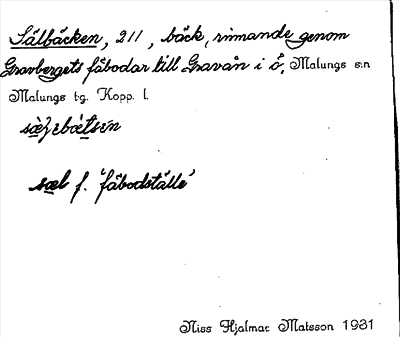 Sälbäcken, 211, bäck, rinnande genom
Gravbergets fäbodar till Gravån i ö. Malungs sn
Malungs tg. Kopp. l.
sæl f. 'fäbodställe'
Niss Hjalmar Matsson 1931